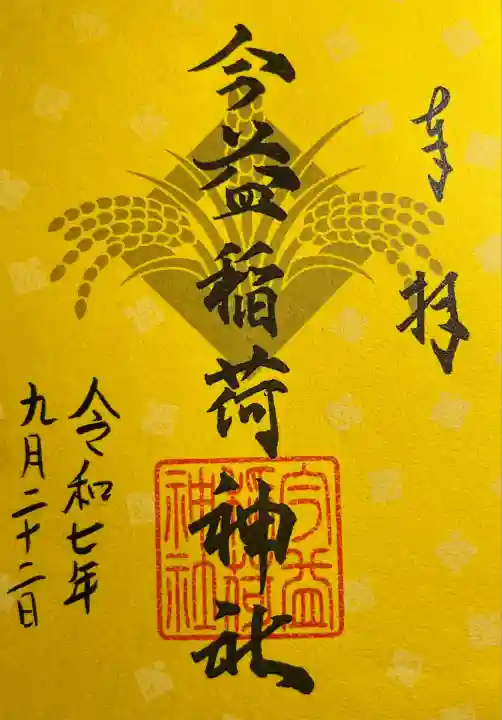 奉拝
今益稲荷神社
今益稲荷神社
令和七年
九月二十二日